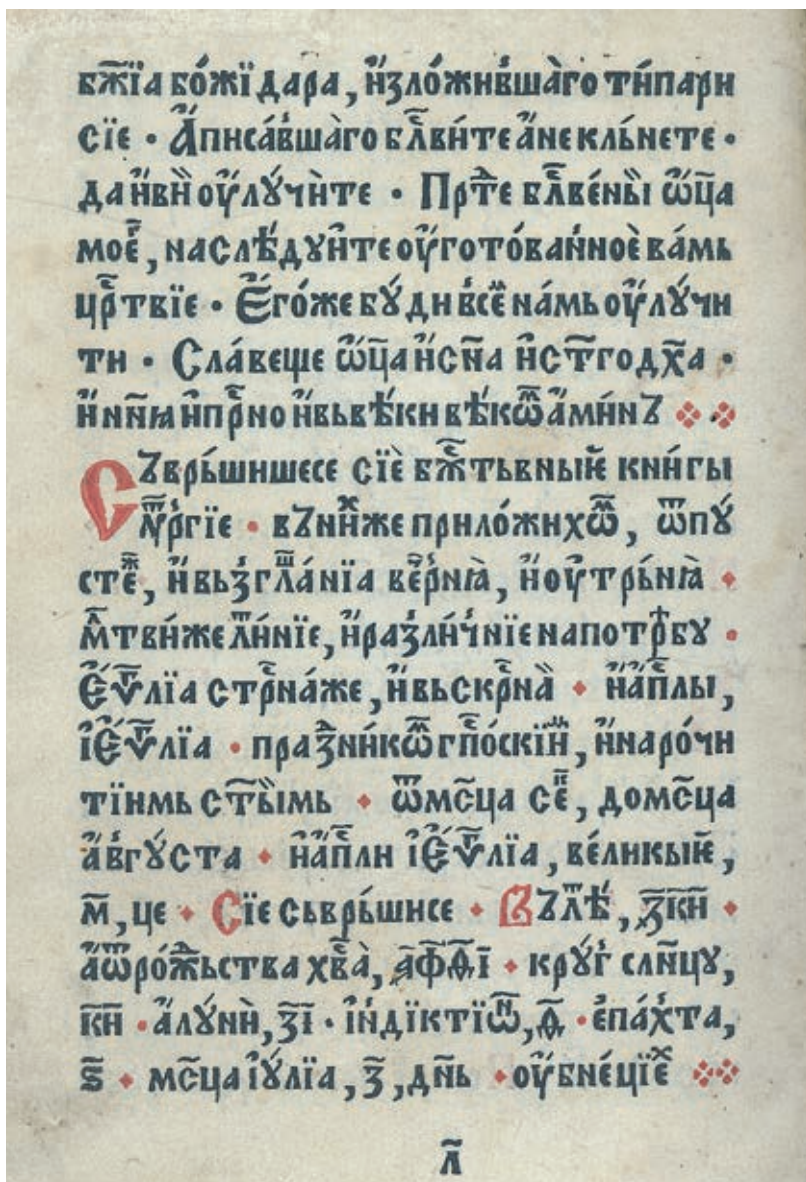 бж҃їа бо́жїдара, и҆зло́жившаго ти́пари
сїе · А҆писа́вшаго бл҃ви́те а҆не кль́нете ·
да и҆вы̀ оу҆лꙋчѝте · Прⷣте бл҃ве́ны̀и ѡ҆ц҃а
моеⷢ҇, наслѣ́дꙋите оу҆готова́нное ва́мь
црⷭ҇твїе · Є҆го́же бꙋ́ди всѣⷨ на́мь оу҆лꙋчи
ти · Сла́веще ѡ҆ц҃а и҆сн҃а и҆ст҃го дх҃а ·
и҆нн҃ꙗ и҆прⷭ҇но и҆вьвѣ́ки вѣ́кѡⷨ а҆ми́нꙋ
Сꙋврь́шишесе сїѐ бжⷭ҇тьвныи҆ кни́гы
слꙋⷤ́ргїе · вꙋни́ⷯже прило́жихѡⷨ, ѿпꙋ́
стеⷤ, и҆вьзгла́ⷲнїа веⷱ҇рнꙗ̀, и҆оу҆трь́нꙗ̀ ·
мⷧ҇тви́же лиⷮ́нїе, и҆разли́чнїе на потрⷠ҇бꙋ ·
Є҆ѵⷢ҇лїа стрⷭ҇на́же, и҆вьскрⷭ҇на̀ · и҆а҆пⷭ҇лы,
ї҆є҆ѵⷢ҇лїа · празⷣни́кѡⷨ гпⷭ҇о́скїиⷯ, и҆наро́чи
тїимь ст҃ы̀имь · ѿмⷭ҇ца сеⷫ҇, до мⷭ҇ца
а҆́вгꙋ́ста · и҆а҆пⷭ҇ли ї҆є҆ѵⷢ҇лїа, ве́ликыи҆,
м҃, це · Сїе сьврь́шисе · Вꙋлⷮѣ, ҂з҃к҃и ·
а҆ѿро́жⷣьства хв҃а̀, ҂а҃ф҃ѳ҃і · крꙋ́гⷭ҇ слн҃цꙋ,
к҃и · а҆лꙋ́нѝ, з҃і · ї҆ндїктїѡⷩ, ѳ҃ · є҆па́хта,
ѕ҃ · мⷭ҇ца ї҆ꙋ́лїа, з҃, дн҃ь · оу҆бне́цїеⷯ
л҃